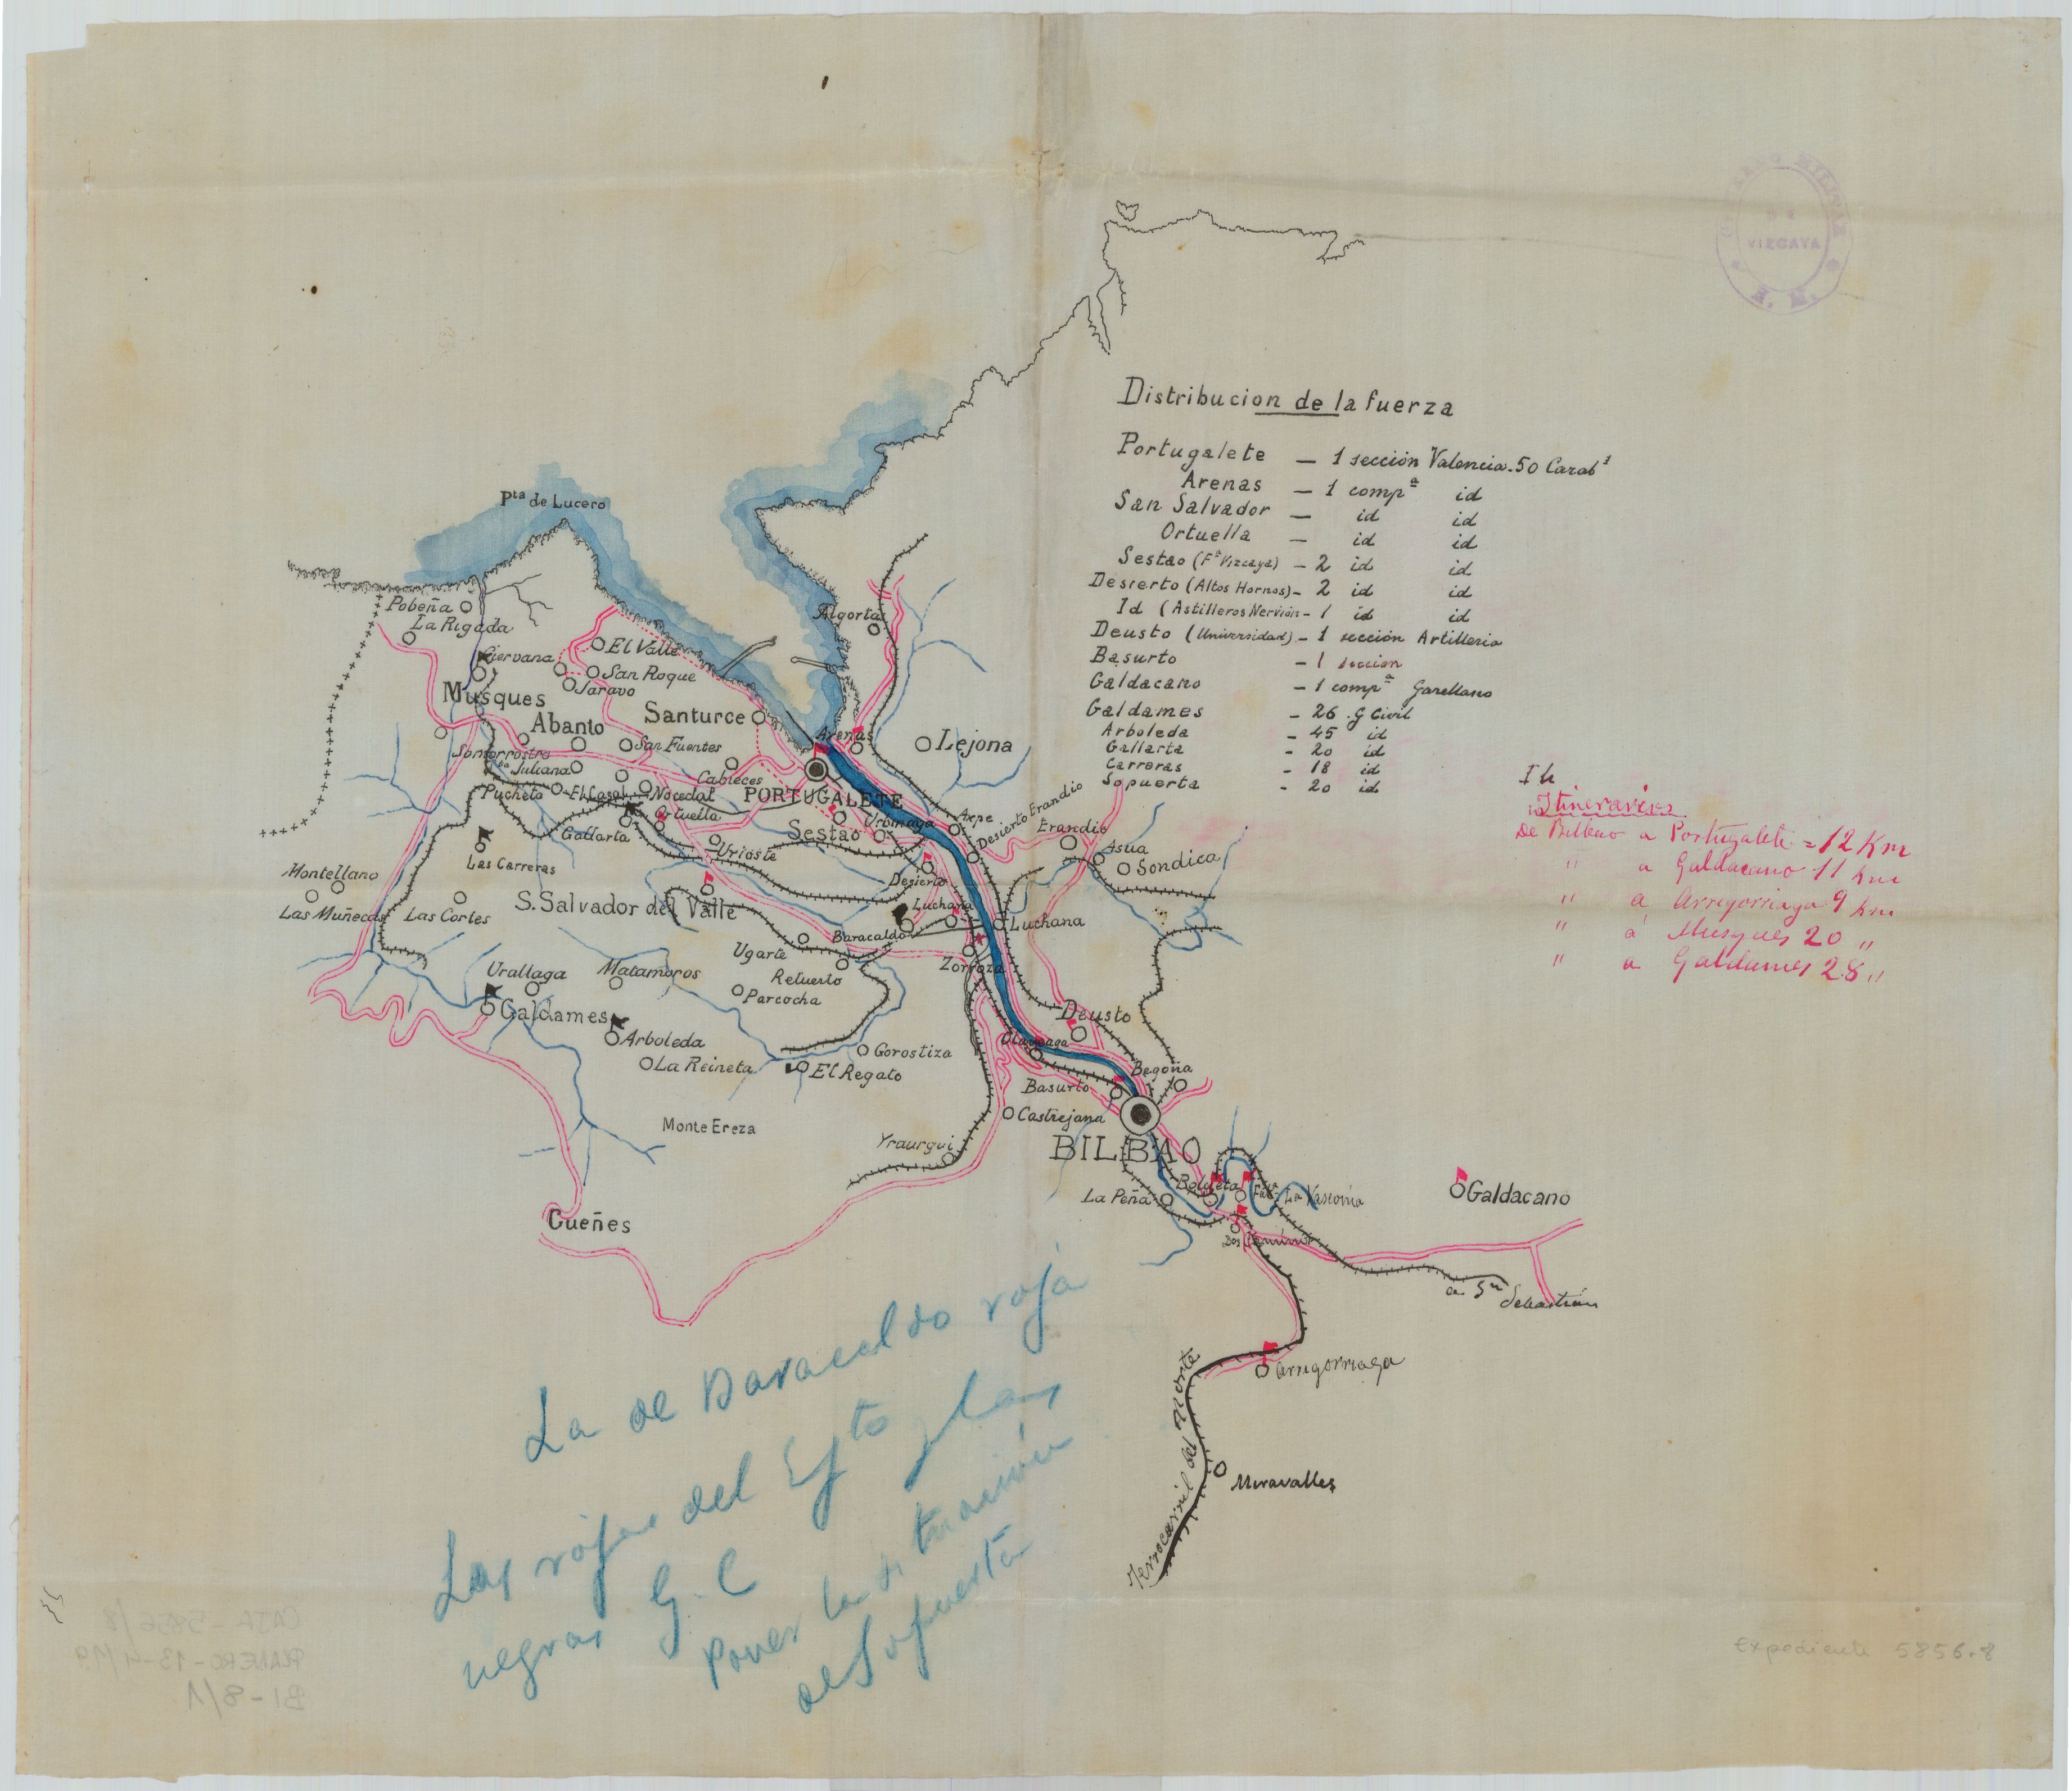 GOBIERNO MILITAR
DE
VIZCAYA
E. M.
Distribucion de la fuerza
Portugalete — 1 sección Valencia. 50 Carab.ˢ
Arenas — 1 compª id
San Salvador — id id
Ortuella — id id
Sestao (Fª Vizcaya) — 2 id id
Desierto (Altos Hornos) — 2 id id
Id (Astilleros Nervión — 1 id id
Deusto (Universidad) — 1 sección Artilleria
Basurto — 1 seccion
Galdacano — 1 compª Garellano
Galdames — 26 . G Civil
Arboleda — 45 id
Gallarta — 20 id
Carreras — 18 id
Sopuerta — 20 id
Itinerarios
De Bilbao a Portugalete = 12 Km
" a Galdacano 11 Km
" a Arrigorriaga 9 Km
" a Musques 20 "
" a Galdames 28 "
Pta de Lucero
Pobeña
La Rigada
Algorta
El Valle
Ciervana
San Roque
Saravo
Musques
Santurce
Abanto
Arenas
Lejona
San Fuentes
Somorrostro
Sta Juliana
Cabieces
Pucheto
El Casal
Nocedal
PORTUGALETE
Ortuella
Gallarta
Sestao
Urbinaga
Axpe
Desierto Erandio
Erandio
Asua
Sondica
Urioste
Las Carreras
Desierto
Montellano
Las Muñecas
Las Cortes
S. Salvador del Valle
Luchana
Luchana
Baracaldo
Ugarte
Retuerto
Zorroza
Urallaga
Matamoros
Parcocha
Galdames
Deusto
Arboleda
Olaveaga
La Reineta
Gorostiza
El Regato
Begoña
Basurto
Castrejana
Monte Ereza
Yraurgui
BILBAO
La Peña
Bolueta
Fca La Vasconia
Galdacano
Gueñes
Dos Caminos
a Sn Sebastián
Arrigorriaga
Ferrocarril del Norte
Miravalles
La de Baracaldo roja
Las rojas del Eyto y las
negras G. C
poner la situación
de Sopuerta
CAJA - 5856/8
PLANERO - 13-4/19
BI - 8/1
Expediente 5856.8